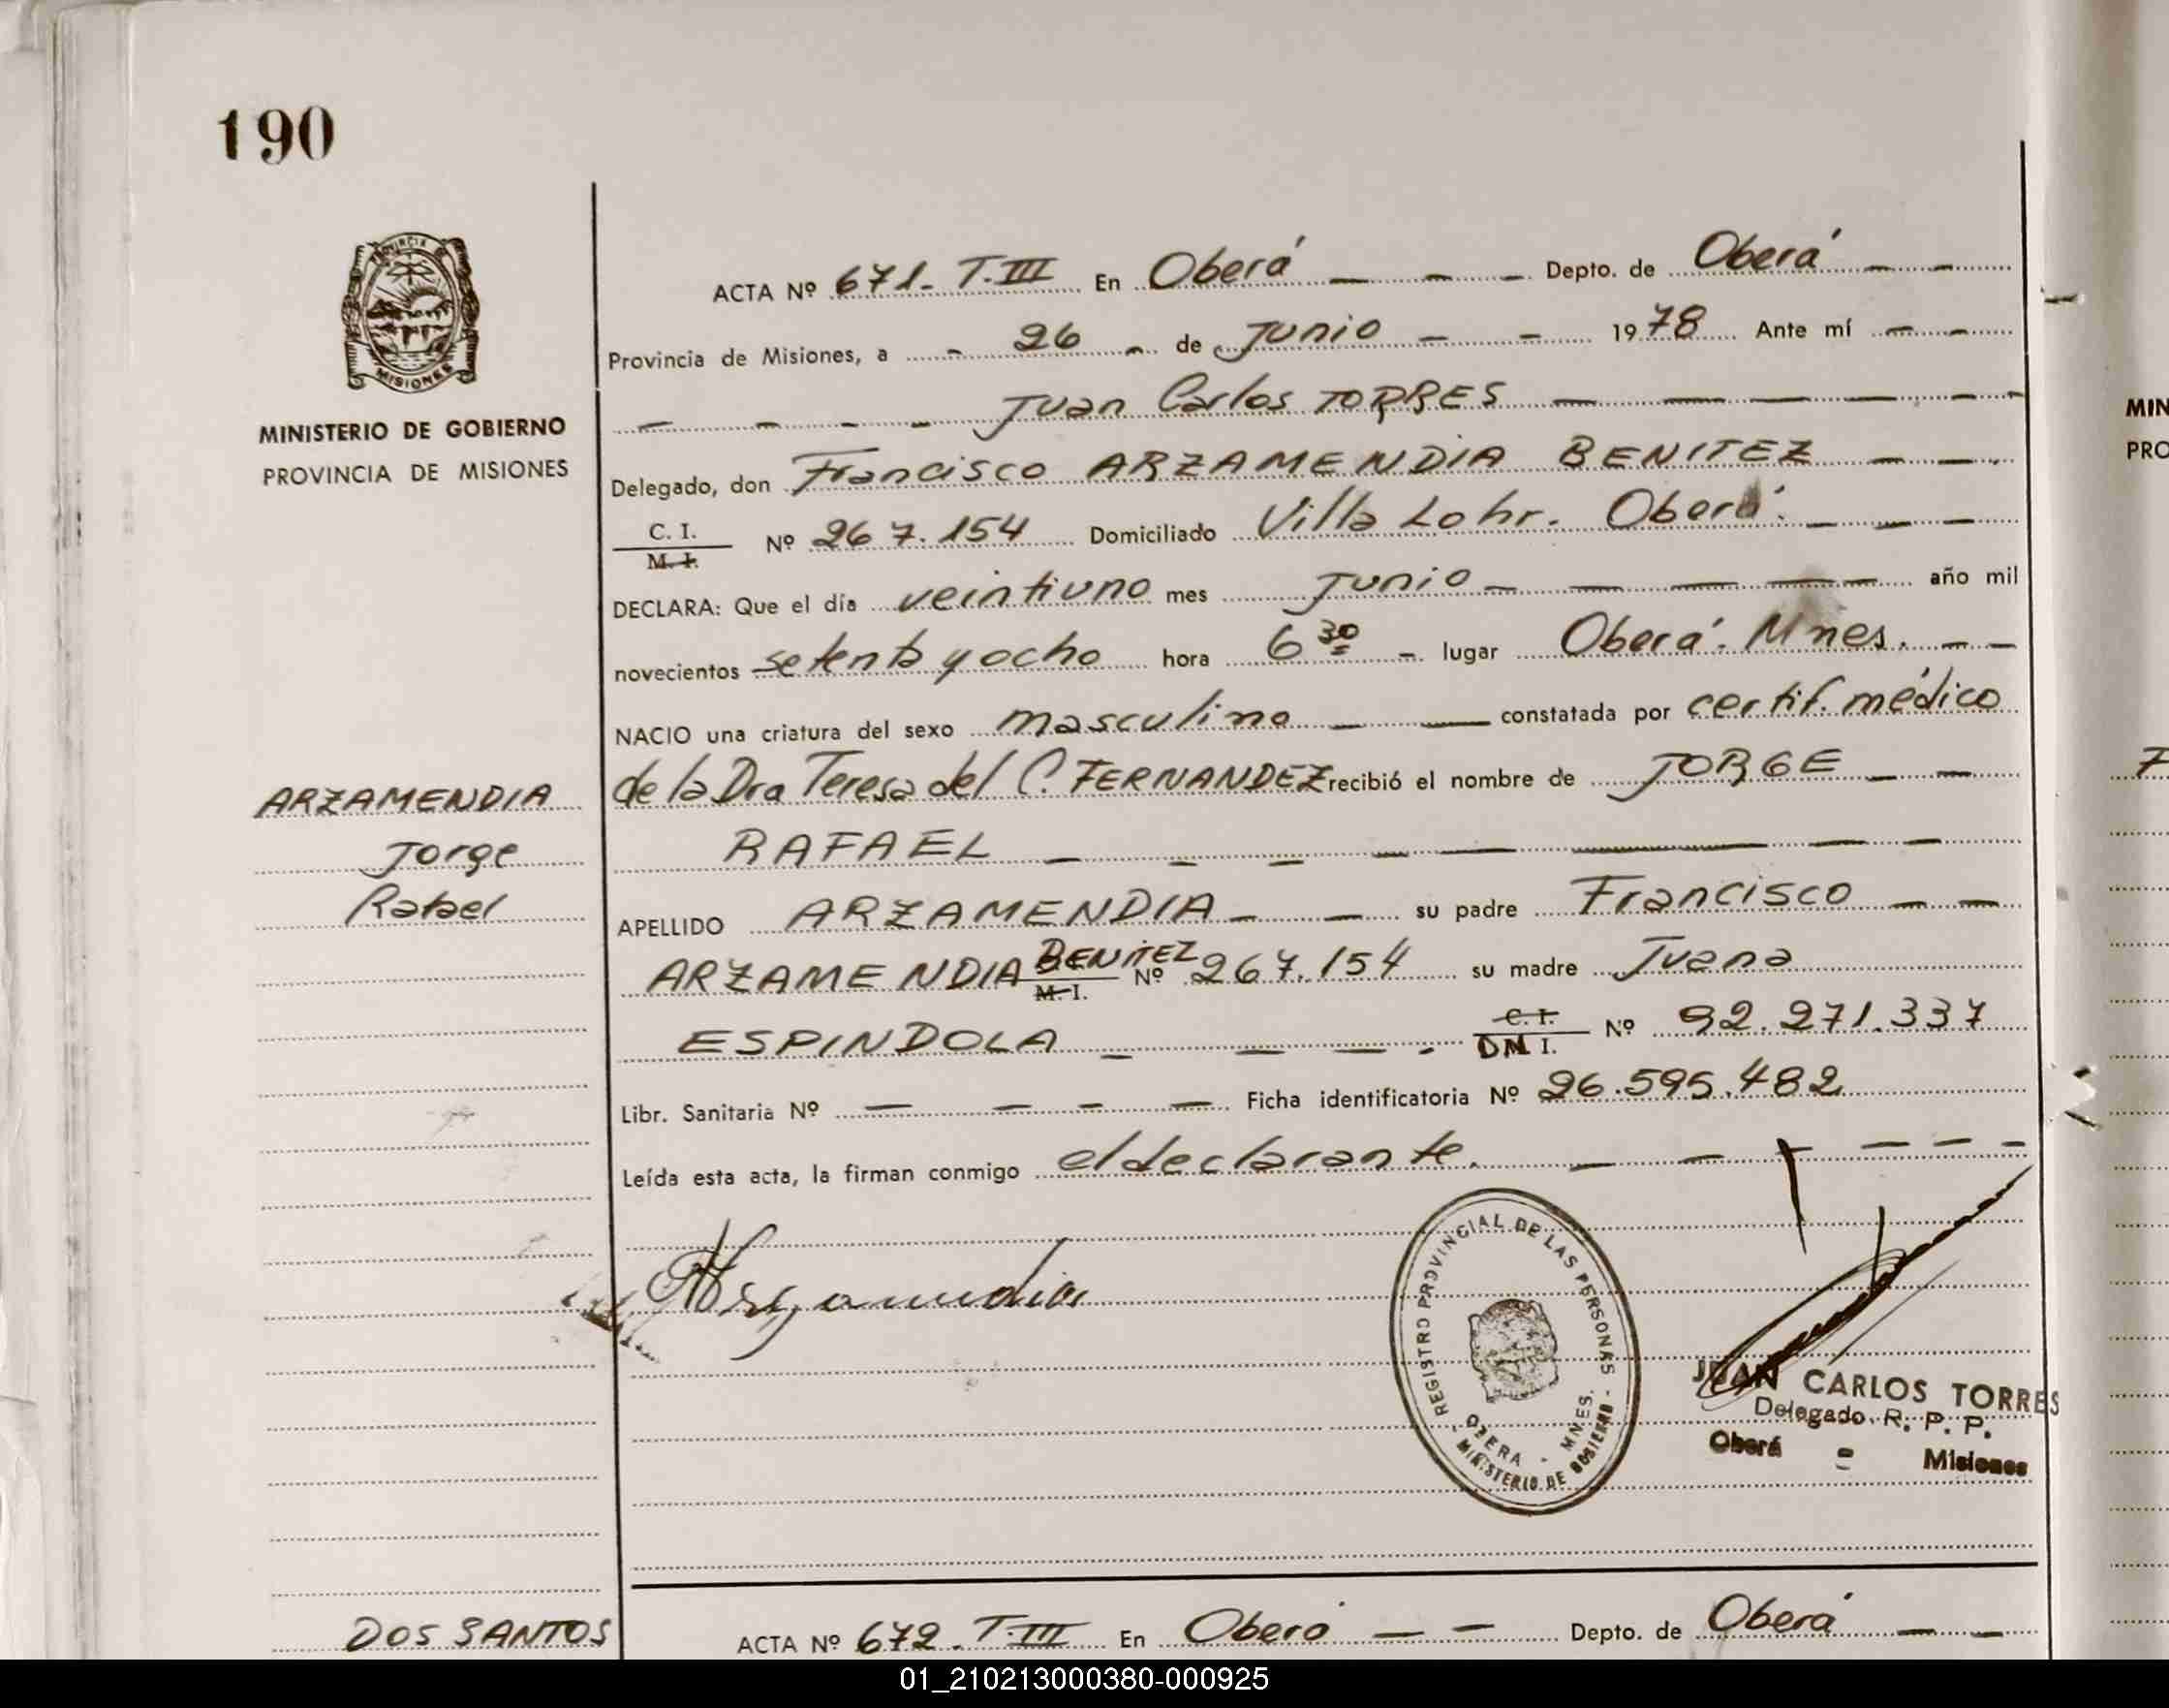 190
PROVINCIA DE
MISIONES
MINISTERIO DE GOBIERNO
PROVINCIA DE MISIONES
ARZAMENDIA
Jorge
Rafael
ACTA Nº 671- T.III En Oberá Depto. de Oberá
Provincia de Misiones, a 26 de Junio 1978 Ante mí
Juan Carlos TORRES
Delegado, don Francisco ARZAMENDIA BENITEZ
C. I.
M. I.
Nº 267.154 Domiciliado Villa Lohr. Oberá.
DECLARA: Que el día veintiuno mes Junio año mil
novecientos setenta y ocho hora 6 30 lugar Oberá. Mnes.
NACIO una criatura del sexo masculino constatada por certif. médico
de la Dra Teresa del C. FERNANDEZ recibió el nombre de JORGE
RAFAEL
APELLIDO ARZAMENDIA su padre Francisco
ARZAMENDIA BENITEZ M. I. Nº 267.154 su madre Juana
ESPINDOLA C. I. DN I. Nº 92.271.337
Libr. Sanitaria Nº Ficha identificatoria Nº 26.595.482
Leída esta acta, la firman conmigo el declarante.
Arzamendia
REGISTRO PROVINCIAL DE LAS PERSONAS
OBERA - MNES.
MINISTERIO DE GOBIERNO
JUAN CARLOS TORRES
Delegado R. P. P.
Oberá - Misiones
DOS SANTOS
ACTA Nº 672. T-III En Oberá Depto. de Oberá
MIN
PRO
01_210213000380-000925